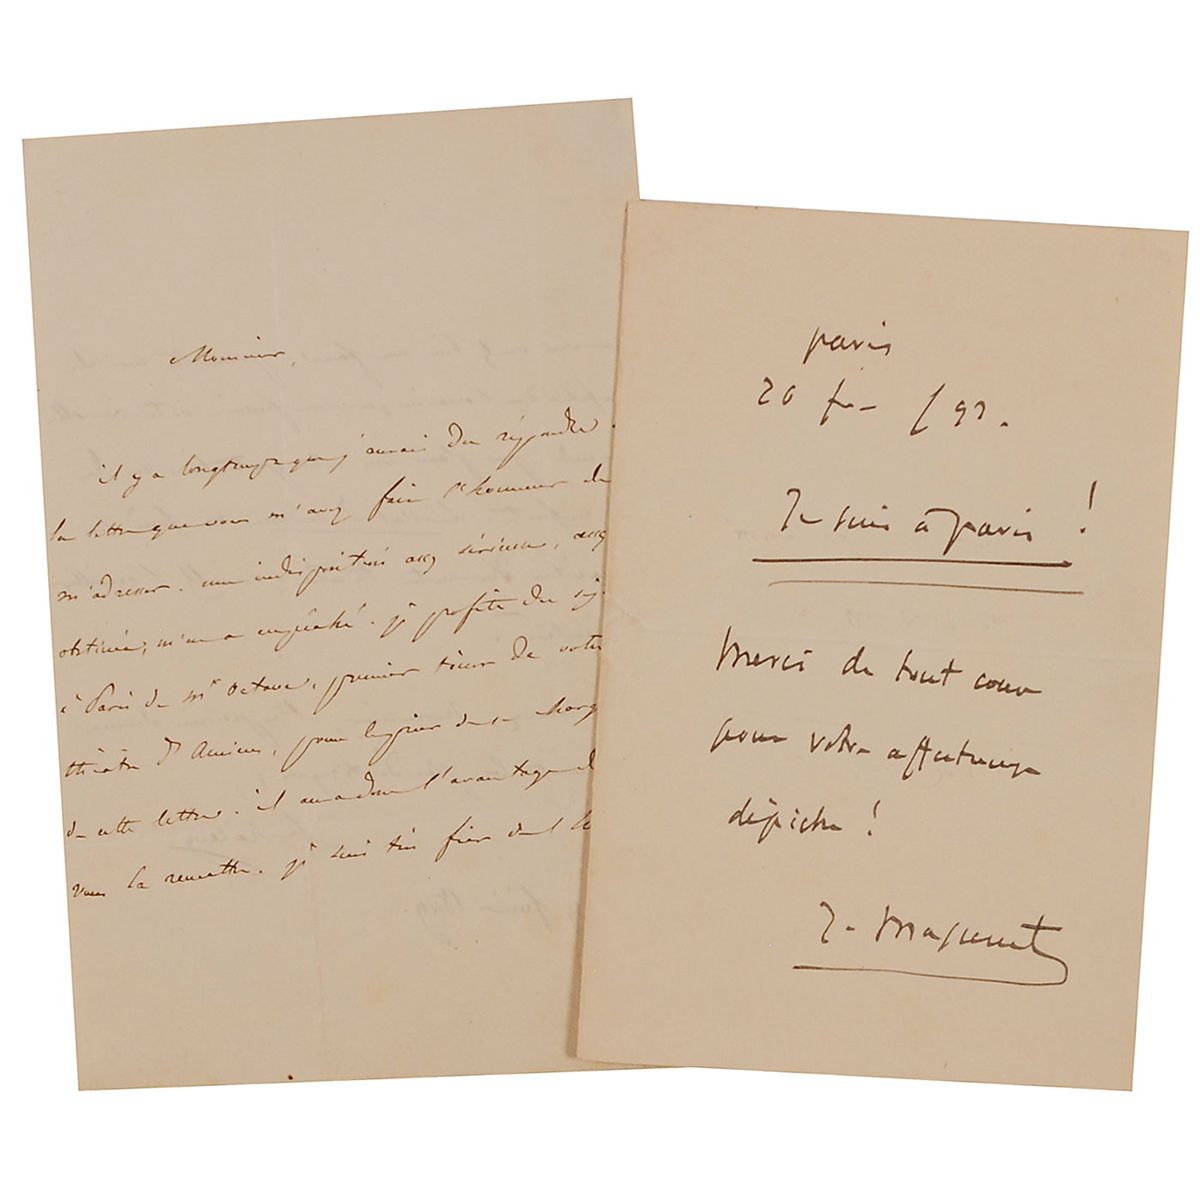 Monsieur,
il y a longtemps que j'aurais dû répondre
la lettre que vous m'avez fait l'honneur de
m'adresser. une indisposition assez sérieuse, assez
obstinée, m'en a empêché. je profite du
à Paris de Mr Octave, premier ténor de votre
théâtre d'Amiens, pour le prier de se charg
de cette lettre. il aura donc l'avantage d
vous la remettre. je suis très fier
paris
20 fév /93.
Je suis à paris !
Merci de tout cœur
pour votre affectueuse
dépêche !
J. Massenet